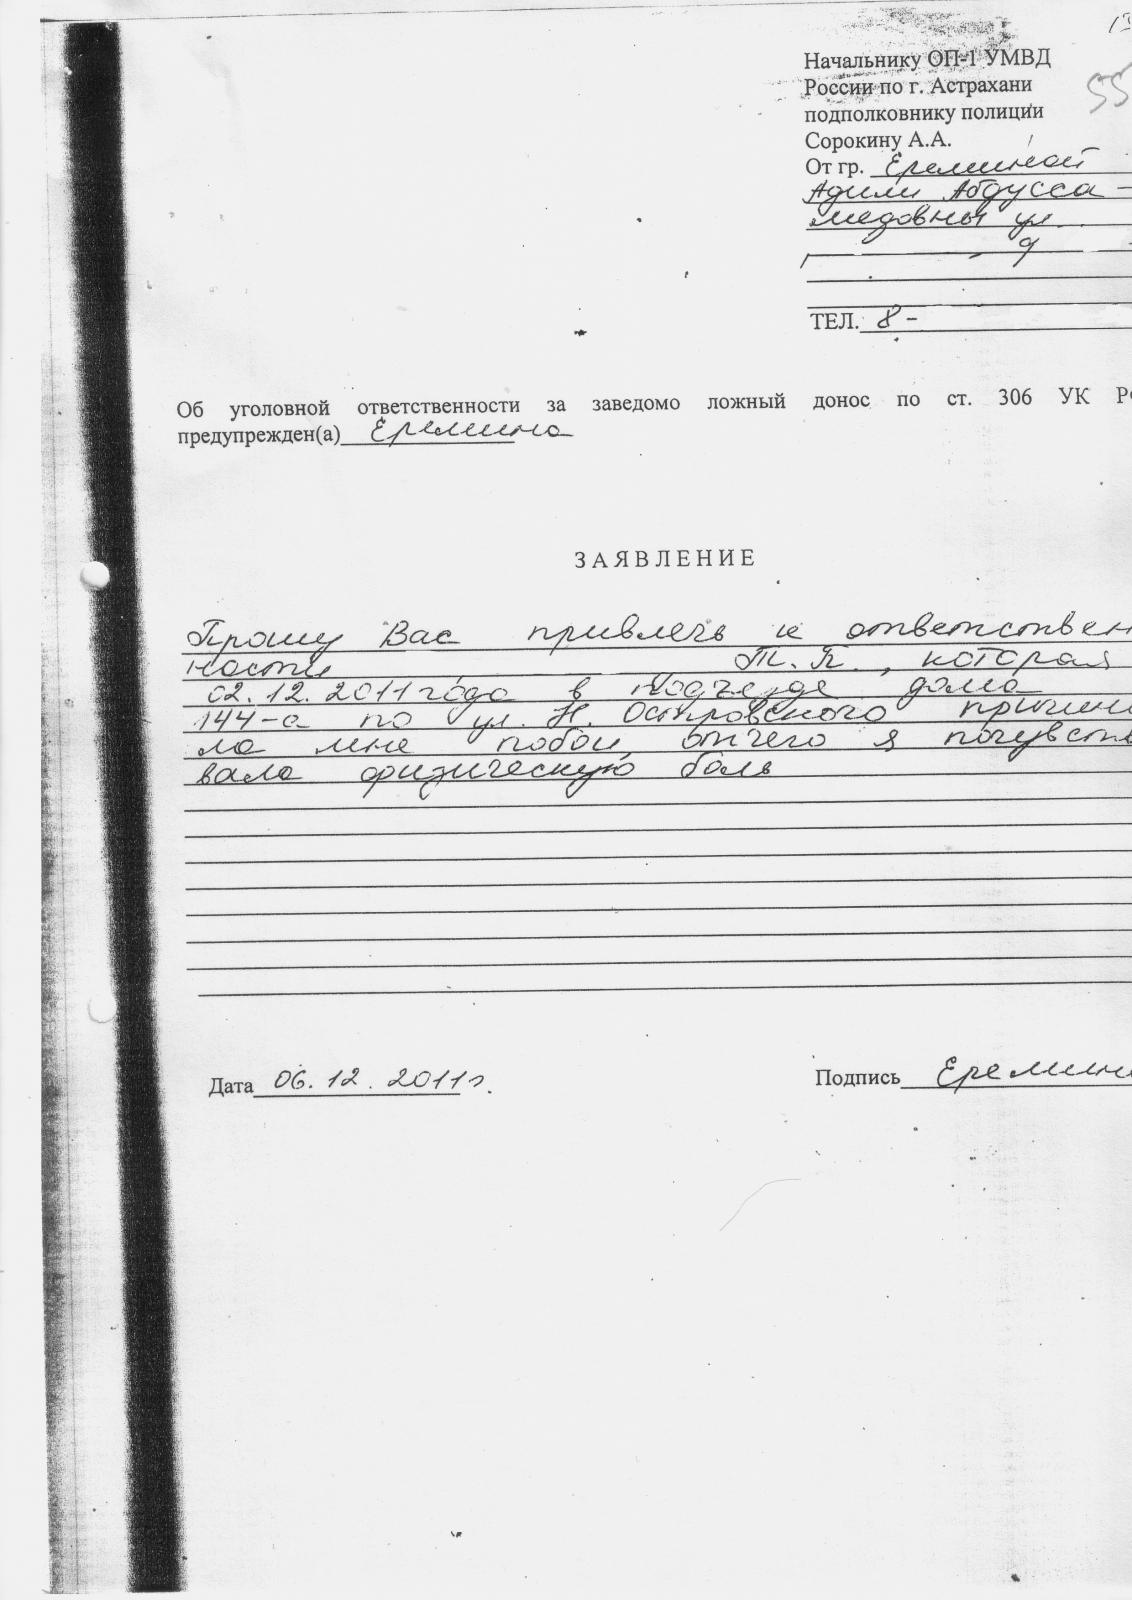 55
Начальнику ОП-1 УМВД
России по г. Астрахани
подполковнику полиции
Сорокину А.А.
От гр. Ереминой
Адили Абдусса-
медовны ул.
ТЕЛ. 8-
Об уголовной ответственности за заведомо ложный донос по ст. 306 УК РФ
предупрежден(а) Еремина
ЗАЯВЛЕНИЕ
Прошу Вас привлечь к ответствен
ности Т.П., которая
02.12.2011 года в подъезде дома
144-а по ул. Н. Островского причини
ла мне побои, отчего я почувство
вала физическую боль
Дата 06.12.2011г.
Подпись Еремина